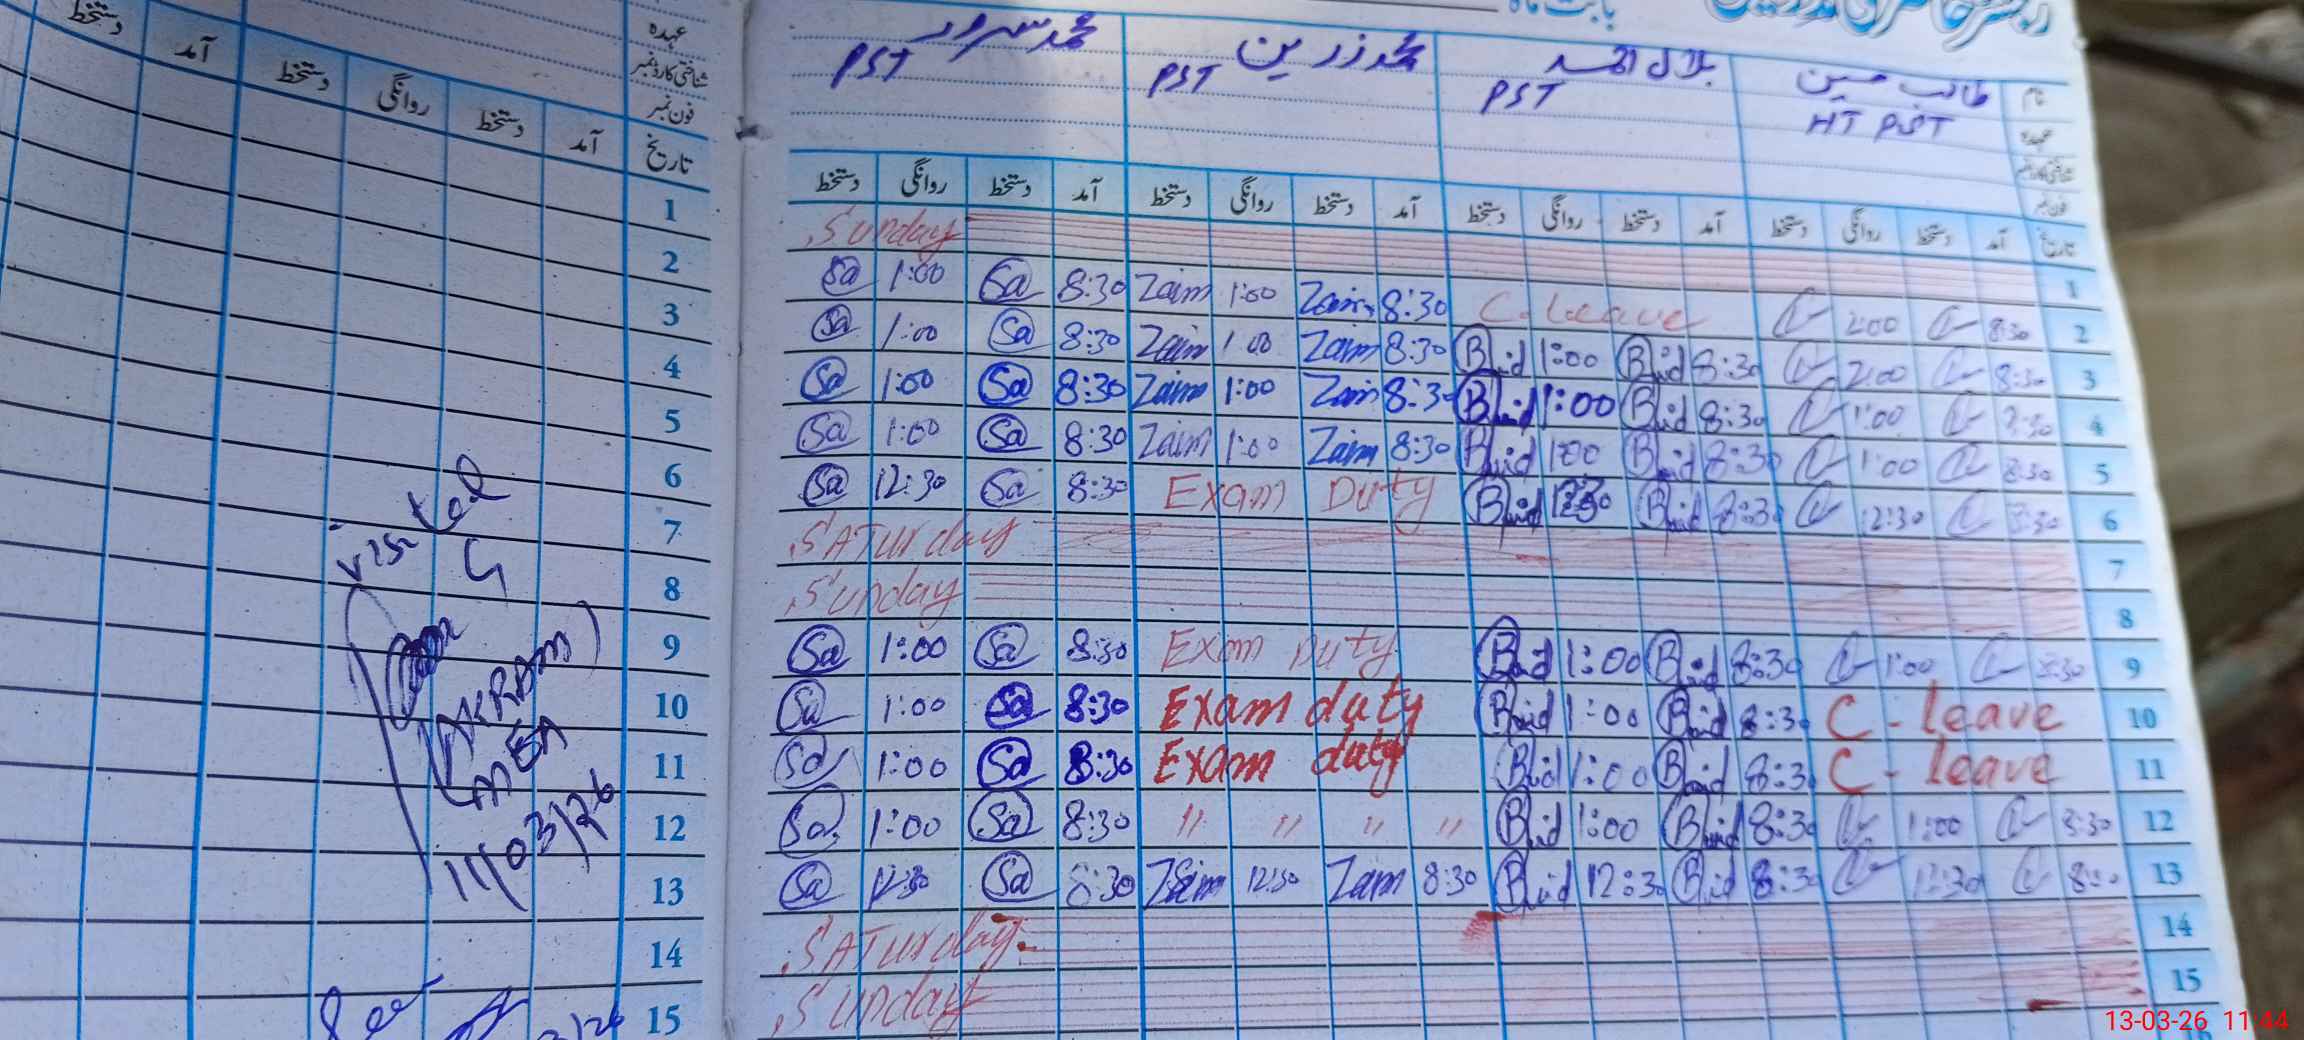 رجسٹر حاضری مدرسین
بابت ماہ
نام طالب حسین بلال احمد محمد زرین محمد سرور
عہدہ HT PST PST PST PST
شناختی کارڈ نمبر
فون نمبر
تاریخ آمد دستخط روانگی دستخط آمد دستخط روانگی دستخط آمد دستخط روانگی دستخط آمد دستخط روانگی دستخط
Sunday 1
Sa 1:00 Sa 8:30 Zaim 1:00 Zaim 8:30 C. Leave 2:00 8:30 2
Sa 1:00 Sa 8:30 Zaim 1:00 Zaim 8:30 1:00 8:30 2:00 8:30 3
Sa 1:00 Sa 8:30 Zaim 1:00 Zaim 8:30 1:00 8:30 1:00 8:30 4
Sa 1:00 Sa 8:30 Zaim 1:00 Zaim 8:30 1:00 8:30 1:00 8:30 5
Sa 12:30 Sa 8:30 Exam Duty 8:30 12:30 8:30 6
SATurday 7
Sunday 8
Sa 1:00 Sa 8:30 Exam Duty 1:00 8:30 1:00 8:30 9
Sa 1:00 Sa 8:30 Exam duty 1:00 8:30 C - leave 10
Sa 1:00 Sa 8:30 Exam duty 1:00 8:30 C - leave 11
Sa 1:00 Sa 8:30 " " " " 1:00 8:30 1:00 8:30 12
Sa 12:30 Sa 8:30 Zaim 12:30 Zaim 8:30 12:30 8:30 12:30 8:30 13
SATurday 14
Sunday 15
عہدہ
شناختی کارڈ نمبر
فون نمبر
تاریخ آمد دستخط روانگی دستخط آمد دستخط
1
2
3
4
5
6
7
8
9
10
11
12
13
14
15
visited
(AKRAM)
MEA
11/03/26
13-03-26 11:44